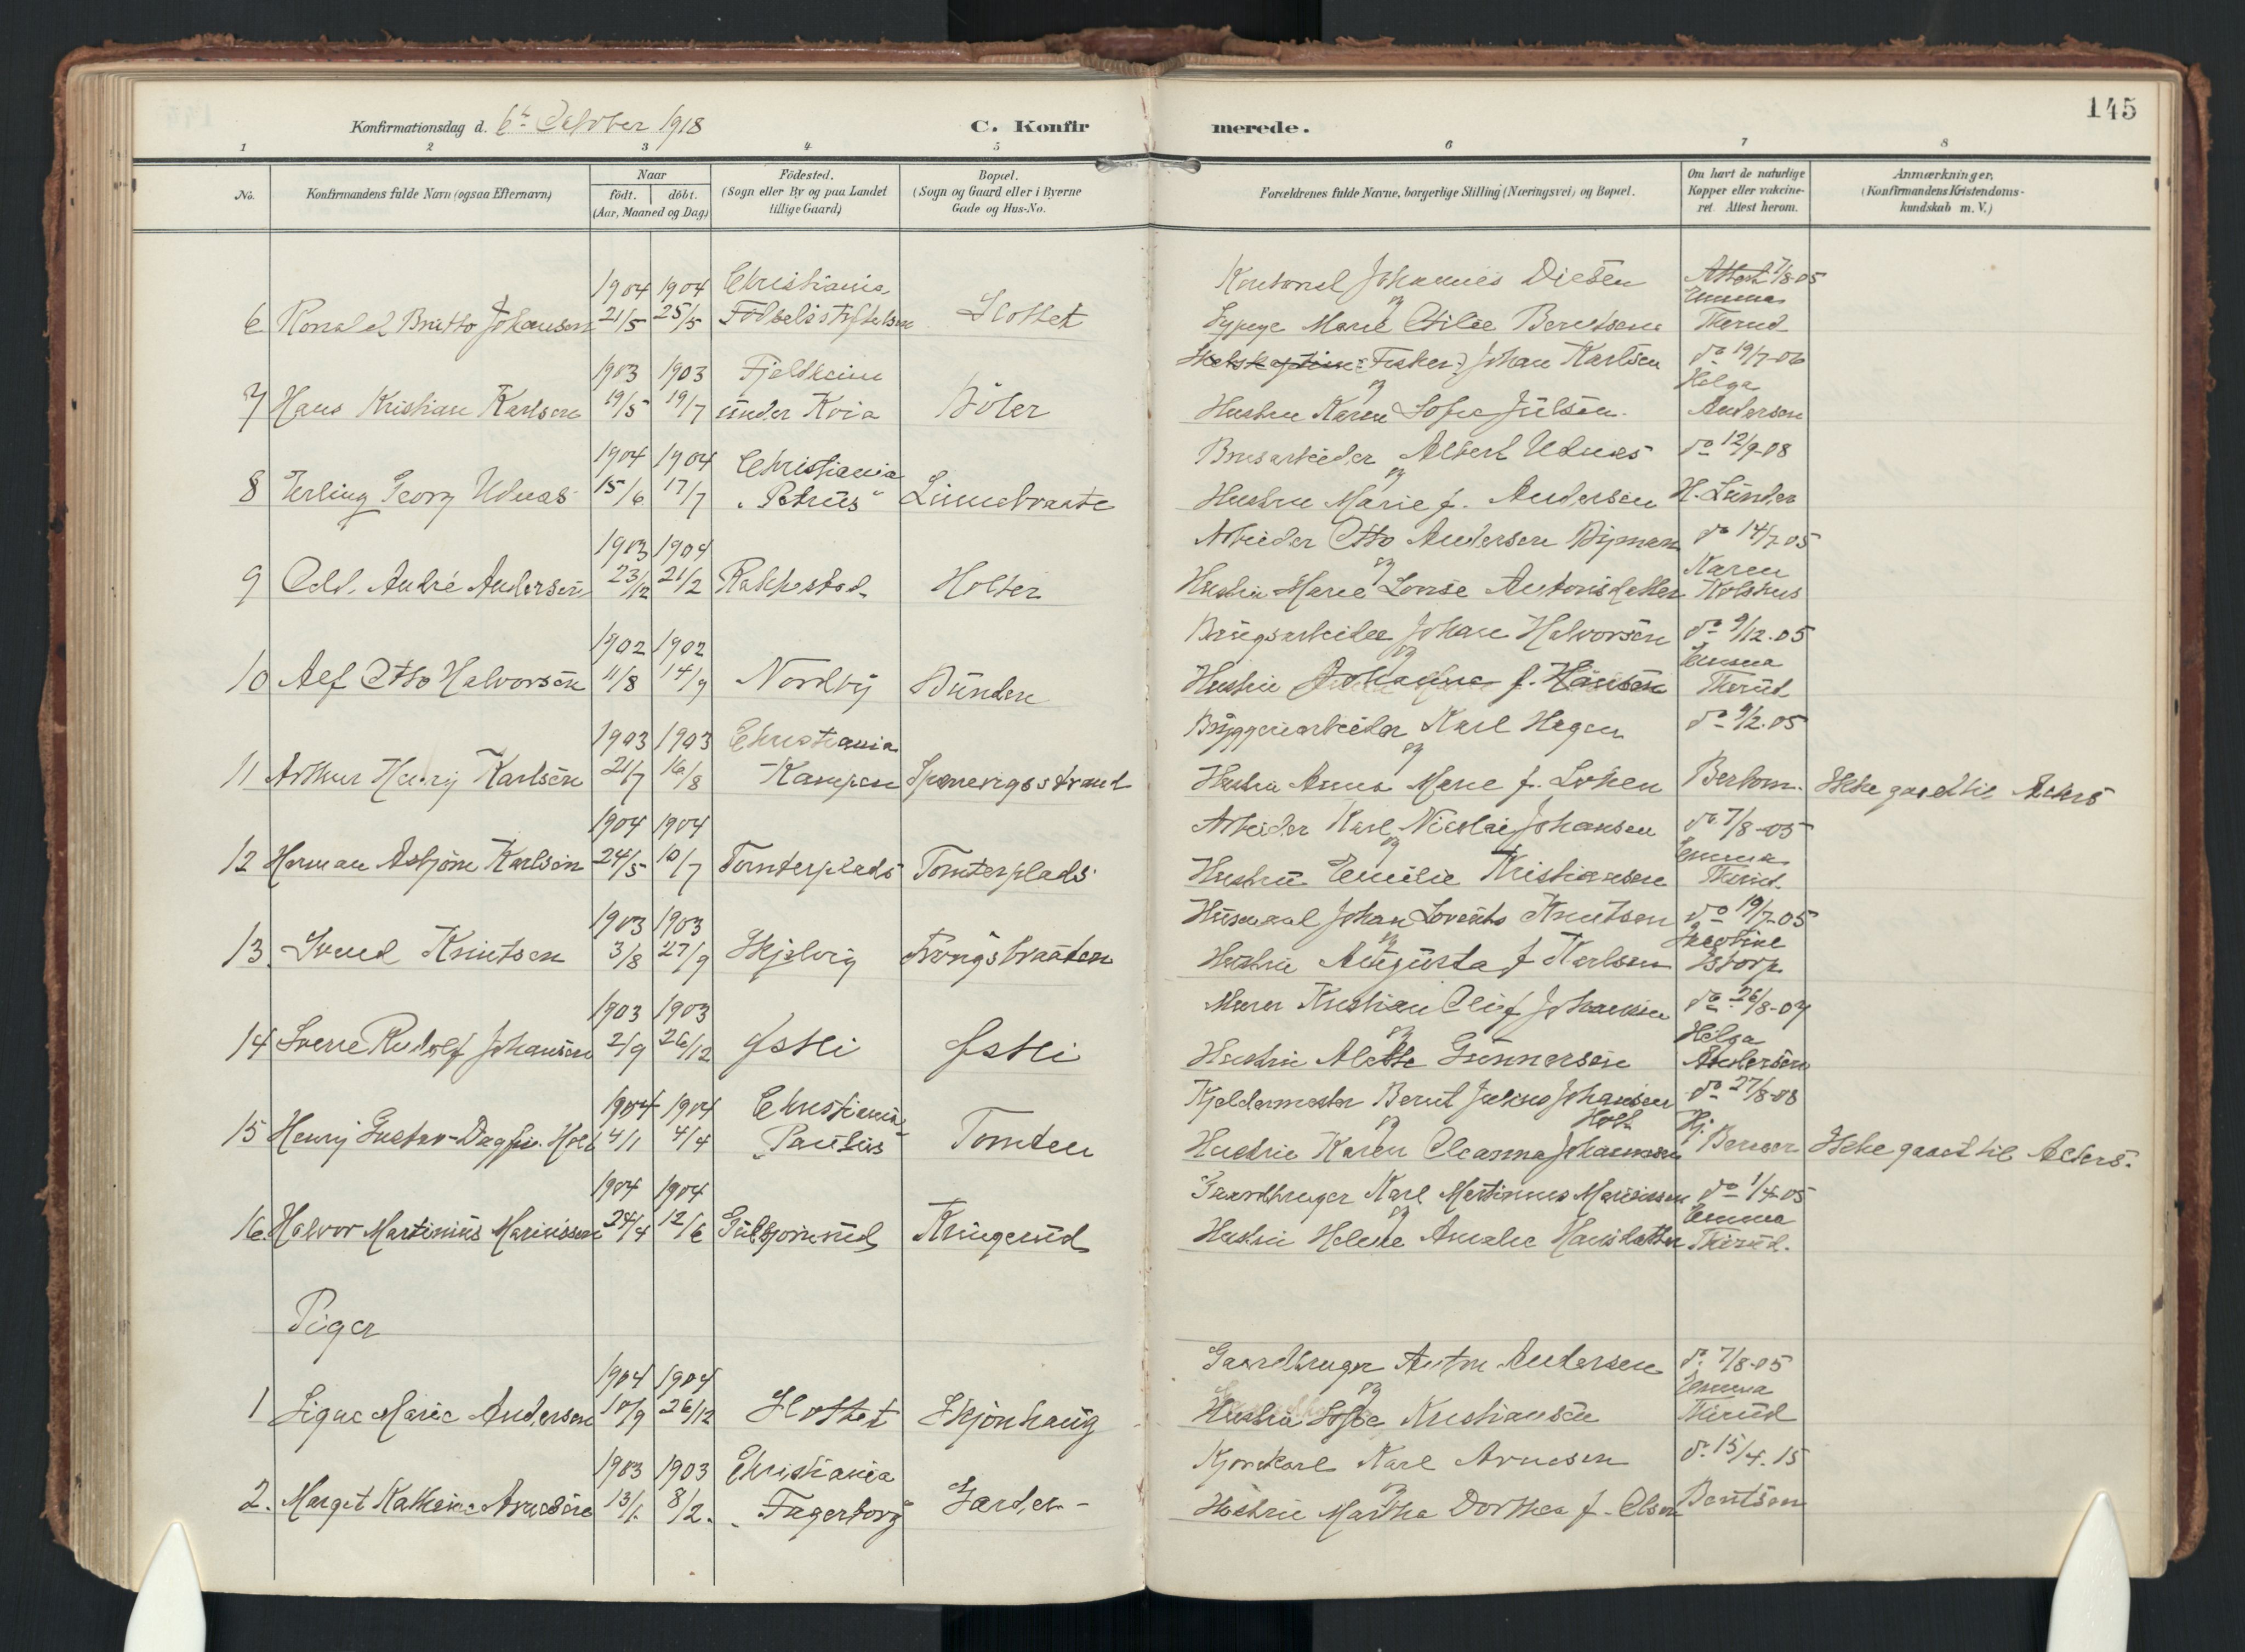 145
Konfirmationsdag d. 6te October 1918
C. Konfirmerede.
1 2 3 4 5 6 7 8
No. Konfirmandens fulde Navn (ogsaa Efternavn) Naar födt. döbt. (Aar, Maaned og Dag) Födested. (Sogn eller By og paa Landet tillige Gaard) Bopæl. (Sogn og Gaard eller i Byerne Gade og Hus-No. Forældrenes fulde Navne, borgerlige Stilling (Næringsvei) og Bopæl. Om havt de naturlige Kopper eller vakcineret. Attest herom. Anmærkninger. (Konfirmandens Kristendomskundskab m. V.)
1904 1904 Christiania Johannes Diesen Attest 7/8-05
Emma
6 Ronald Britto Johansen 21/5 25/5 Födselsstiftelsen Slottet Sypige Marie Otilie Berntsen Therud
1903 1903 Fjeldheim Fisker Johan Karlsen do 19/7-06
og Helga
7 Hans Kristian Karlsen 19/5 19/7 under Böler Hustru Karen Sofie Julsen Andersen
1904 1904 Christiania Brusarbeider Albert Udnæs do 12/9-08
og
8 Erling Georg Udnæs 15/6 17/7 "Petrus" Linnebraate Hustru Marie f. Andersen H. Lunder
1903 1904 Arbeider Otto Andersen do 14/7-05
og Karen
9 Odd. André Andersen 23/12 21/2 Rakkestad Holter Hustru Marie Louise Antonisdatter Kolshus
1902 1902 Brugsarbeider Johan Halvorsen do 9/12-05
og Emma
10 Alf Otto Halvorsen 11/8 14/9 Nordby Hustru Johanna f. Hansen Therud
1903 1903 Christiania Bryggeriarbeider Karl Hagen do 9/2-05
og
11 Arthur Henry Karlsen 21/7 16/8 Kampen Spærevigsstrand Hustru Anna Marie f. Ikke gaaet til Alters
1904 1904 Arbeider Karl Nicolai Johansen do 7/8-05
og Emma
12 Herman Asbjörn Karlsen 24/5 10/7 Tomterplads Tomterplads Hustru Emilie Kristiansen Therud
1903 1903 Husmand Johan Lorents Knutsen do 19/7-05
og
13. Svend Knutsen 3/8 27/9 Skjelvig Hustru Augusta f Karlsen Istorp
1903 1903 Murer Kristian Oluf Johansen do 26/8-04
og Helga
14 Sverre Rudolf Johansen 2/9 26/12 Østli Østli Hustru Alette Gunnersen Andersen
1904 1904 Christiania Kjeldermester Bernt Julius Johansen do 27/8-08
og Holt Hj.
15 Henry Gustav Dagfin. Holt 4/1 4/4 "Paulus" Tomten Hustru Karen Oleanna Johannesen Berner Ikke gaaet til Alters.
1904 1904 Gaardbruger Karl Martinius Mariussen do 1/4-05
og Emma
16. Halvor Martinius Mariussen 24/4 12/6 Gulbjörnrud Krugerud Hustru Helene Amalie Hansdatter Therud.
Piger
1904 1904 Gaardbruger Anton Andersen do 7/8-05
og Emma
1 Signe Marie Andersen 10/9 26/12 Slottet Skjönhaug Hustru Sofie Kristiansen Therud
1903 1903 Christiania Kjørekarl Karl Arnesen do 15/4.15
og
2. Margit Kathrine Arnesen 13/1. 8/2. "Fagerborg" Garder Hustru Martha Dorthea f. Olsen Berntsen